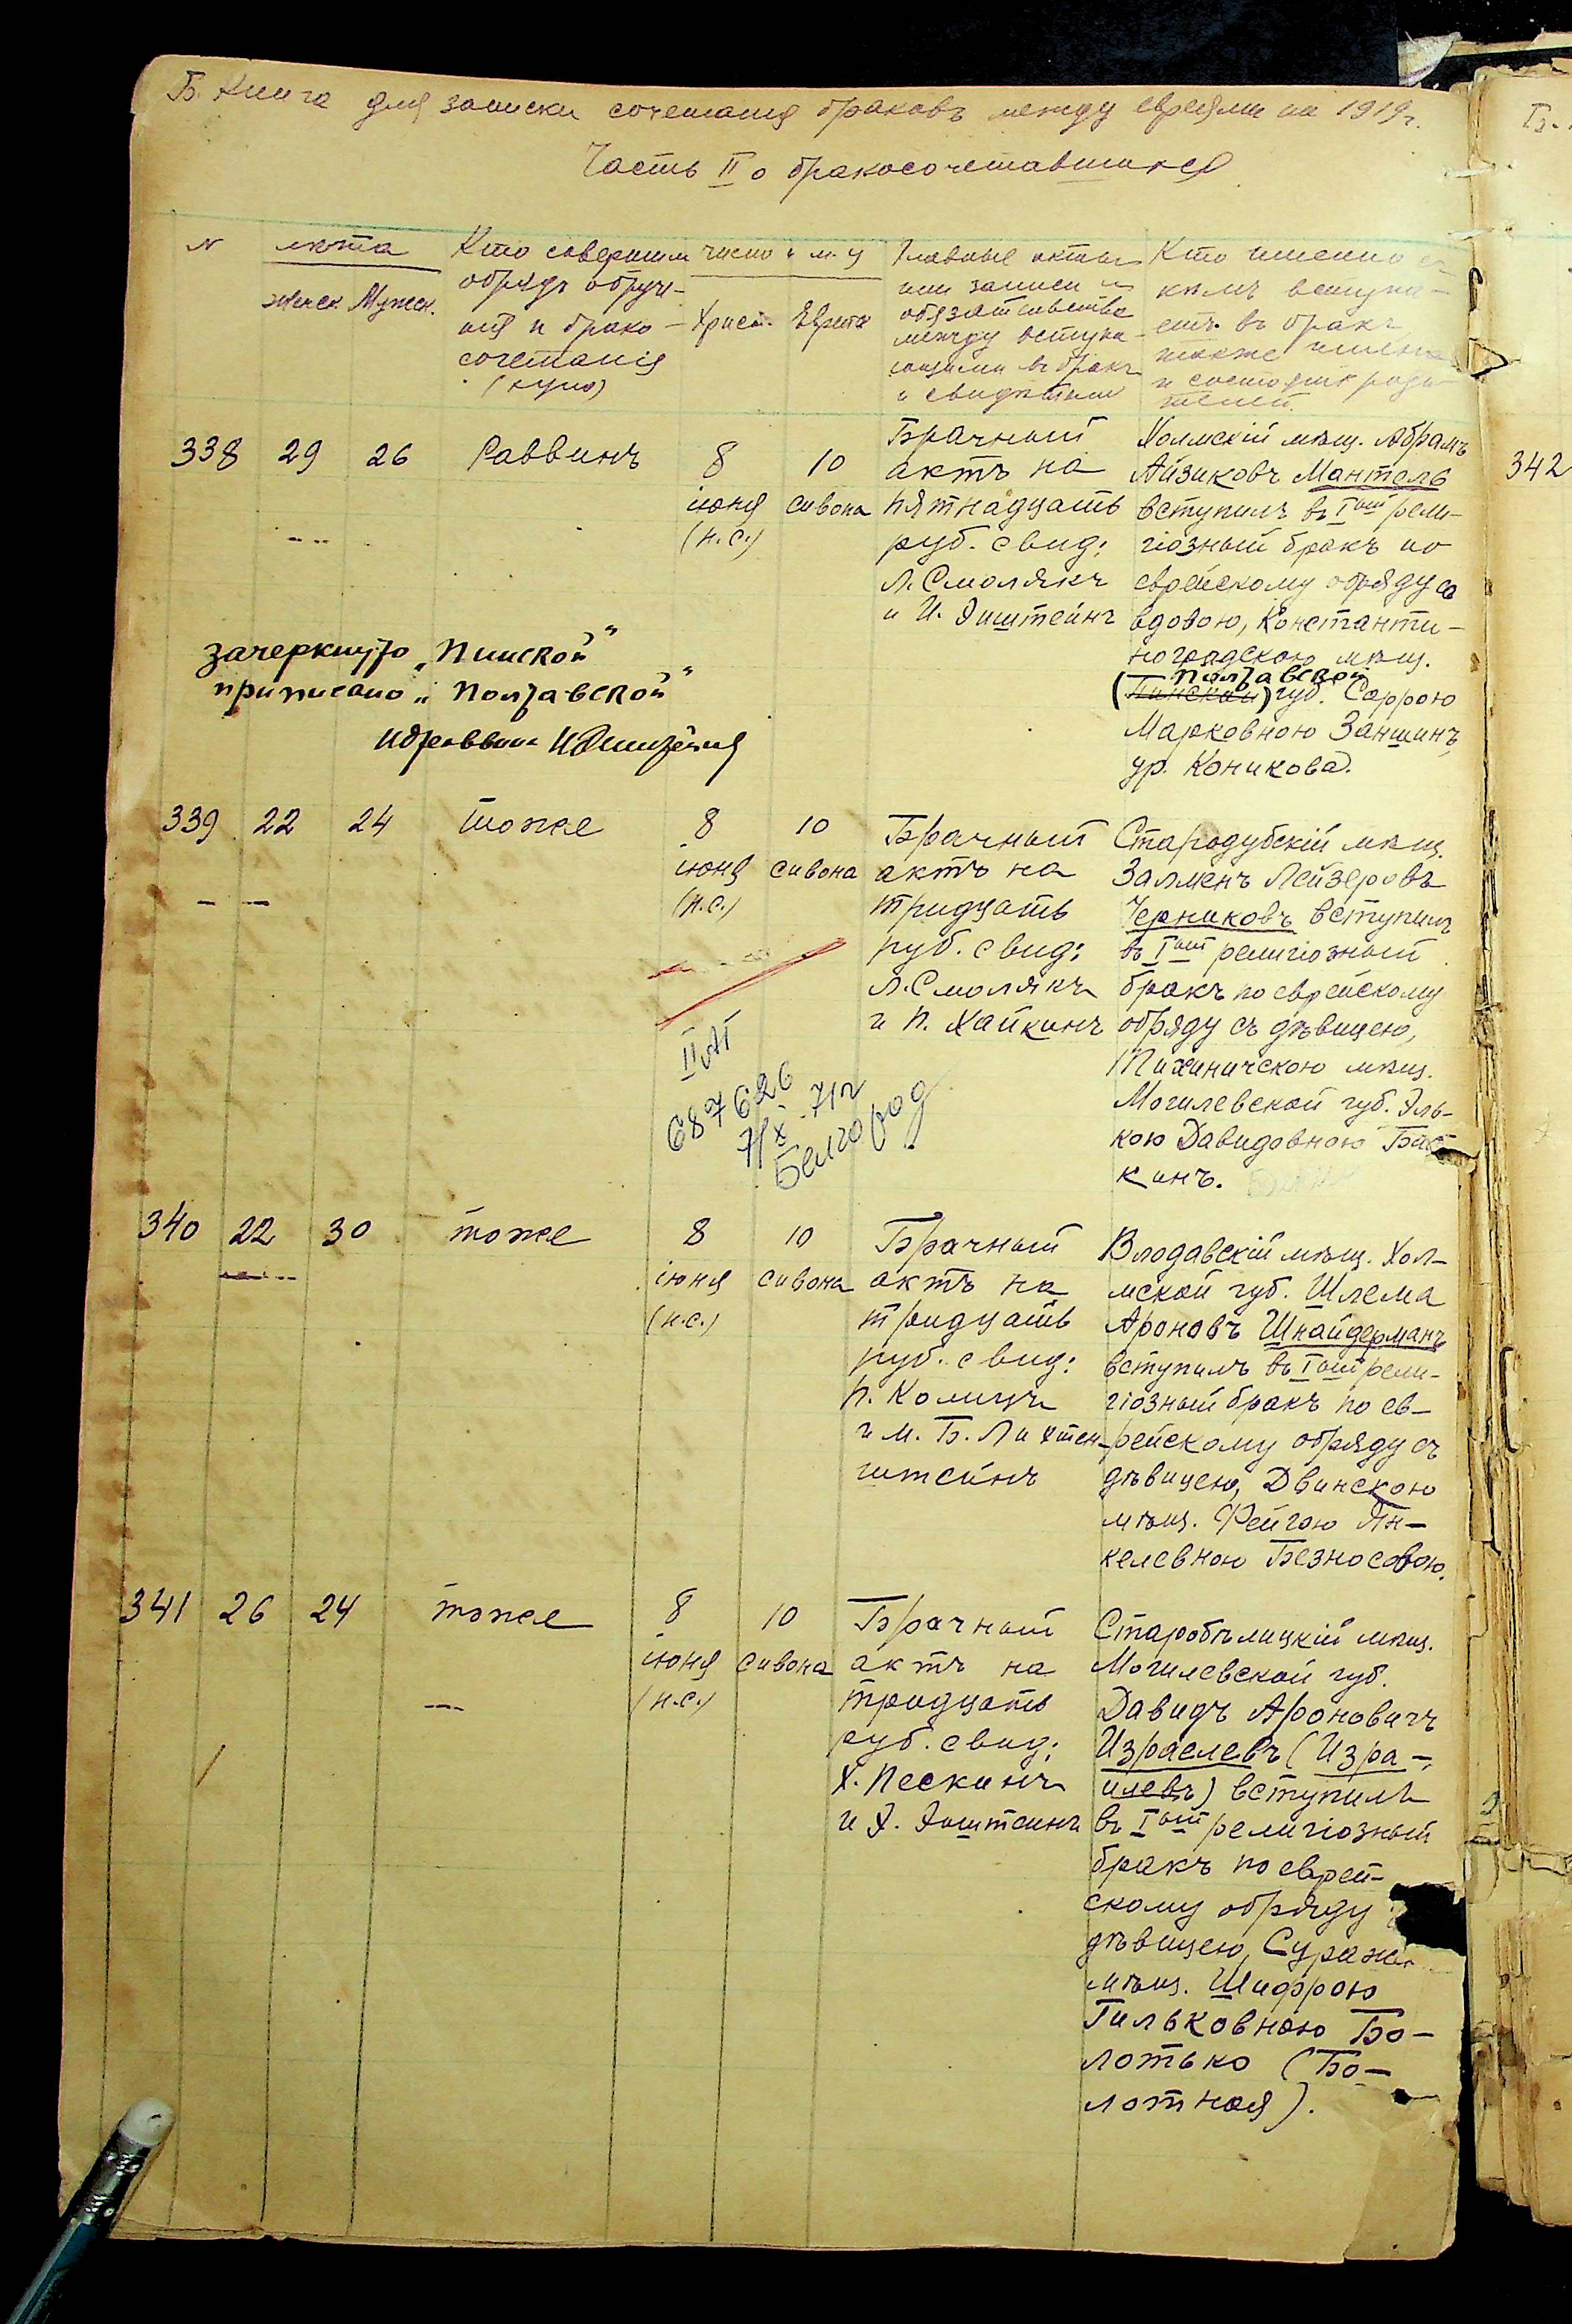 Б. Книга для записки сочетания браковъ между евреями на 1919 г.
Часть II о бракосочетавшихся
N
лѣта
Женск. Мужск.
Кто совершил
обрядъ обруче-
нія и брако-
сочетанія
число и м-ц
Христ. Еврейск.
Главные акты
или записи и
обязательства
между вступа-
ющими въ бракъ
и свидѣтели
Кто именно съ
кѣмъ вступа-
етъ въ бракъ
также имена
и состояніе роди-
телей.
338 29 26 Раввинъ 8 10
іюня сивона
(н.с.)
Брачный
актъ на
пятнадцать
руб. свид:
Л. Смолякъ
и И. Эпштейнъ
Холмскій мѣщ. Абрамъ
Айзиковъ Мантель
вступилъ въ Iый рели-
гіозный бракъ по
еврейскому обряду со
вдовою, Константи-
ноградскою мѣщ.
Полтавской
(Пинской) губ. Саррою
Марковною Заншинъ,
ур. Коникова.
зачеркнуто „Пинской"
приписано „Полтавской"
339 22 24 тоже 8 10
іюня сивона
(н.с.)
Брачный
актъ на
тридцать
руб. свид:
Л. Смолякъ
и П. Хайкинъ
Стародубскій мѣщ.
Залменъ Лейзеровъ
Черниковъ вступилъ
въ Iый религіозный
бракъ по еврейскому
обряду съ дѣвицею,
Тихиничскою мѣщ.
Могилевской губ. Эль-
кою Давидовною
кинъ.
687626
7/X-71г
Белгород
340 22 30 тоже 8 10
іюня сивона
(н.с.)
Брачный
актъ на
тридцать
руб. свид:
П. Колицъ
и М. Б. Лихтен-
штейнъ
Влодавскій мѣщ. Хол-
мской губ. Шлема
Ароновъ Шнайдерманъ
вступилъ въ Iый рели-
гіозный бракъ по ев-
рейскому обряду съ
дѣвицею, Двинскою
мѣщ. Фейгою Ян-
келевною Безносовою.
341 26 24 тоже 8 10
іюня сивона
(н.с.)
Брачный
актъ на
тридцать
руб. свид:
Х. Пескинъ
и Х. Эпштейнъ
Старобѣлицкій мѣщ.
Могилевской губ.
Давидъ Ароновичъ
Израелевъ (Изра-
илевъ) вступилъ
въ Iый религіозный
бракъ по еврей-
скому обряду
дѣвицею, Сураж
мѣщ. Шифрою
Гильковною Бо-
лотько (Бо-
лотная).
342